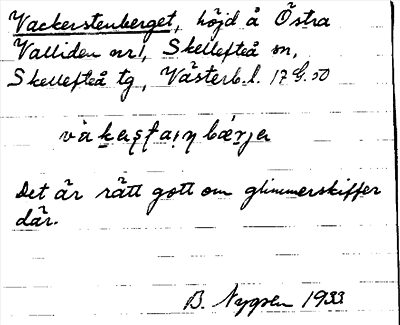 Vackerstenberget, höjd å Östra
Valliden nr 1, Skellefteå sn,
Skellefteå tg, Västerb.l.
Det är rätt gott om glimmerskiffer
där.
B. Nygren 1933